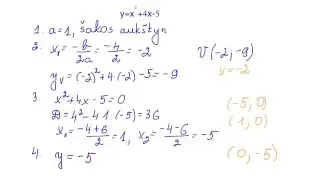 y=x²+4x-5
1. a=1, šakos aukštyn
2. x₁ = -b/2a = -4/2 = -2 V(-2;-9)
yᵥ = (-2)²+4·(-2)-5 = -9 x=-2
3. x²+4x-5=0 (-5, 0)
D=4²-4·1·(-5)=36 (1, 0)
x₁ = -4+6/2 = 1, x₂ = -4-6/2 = -5
4. y=-5 (0, -5)